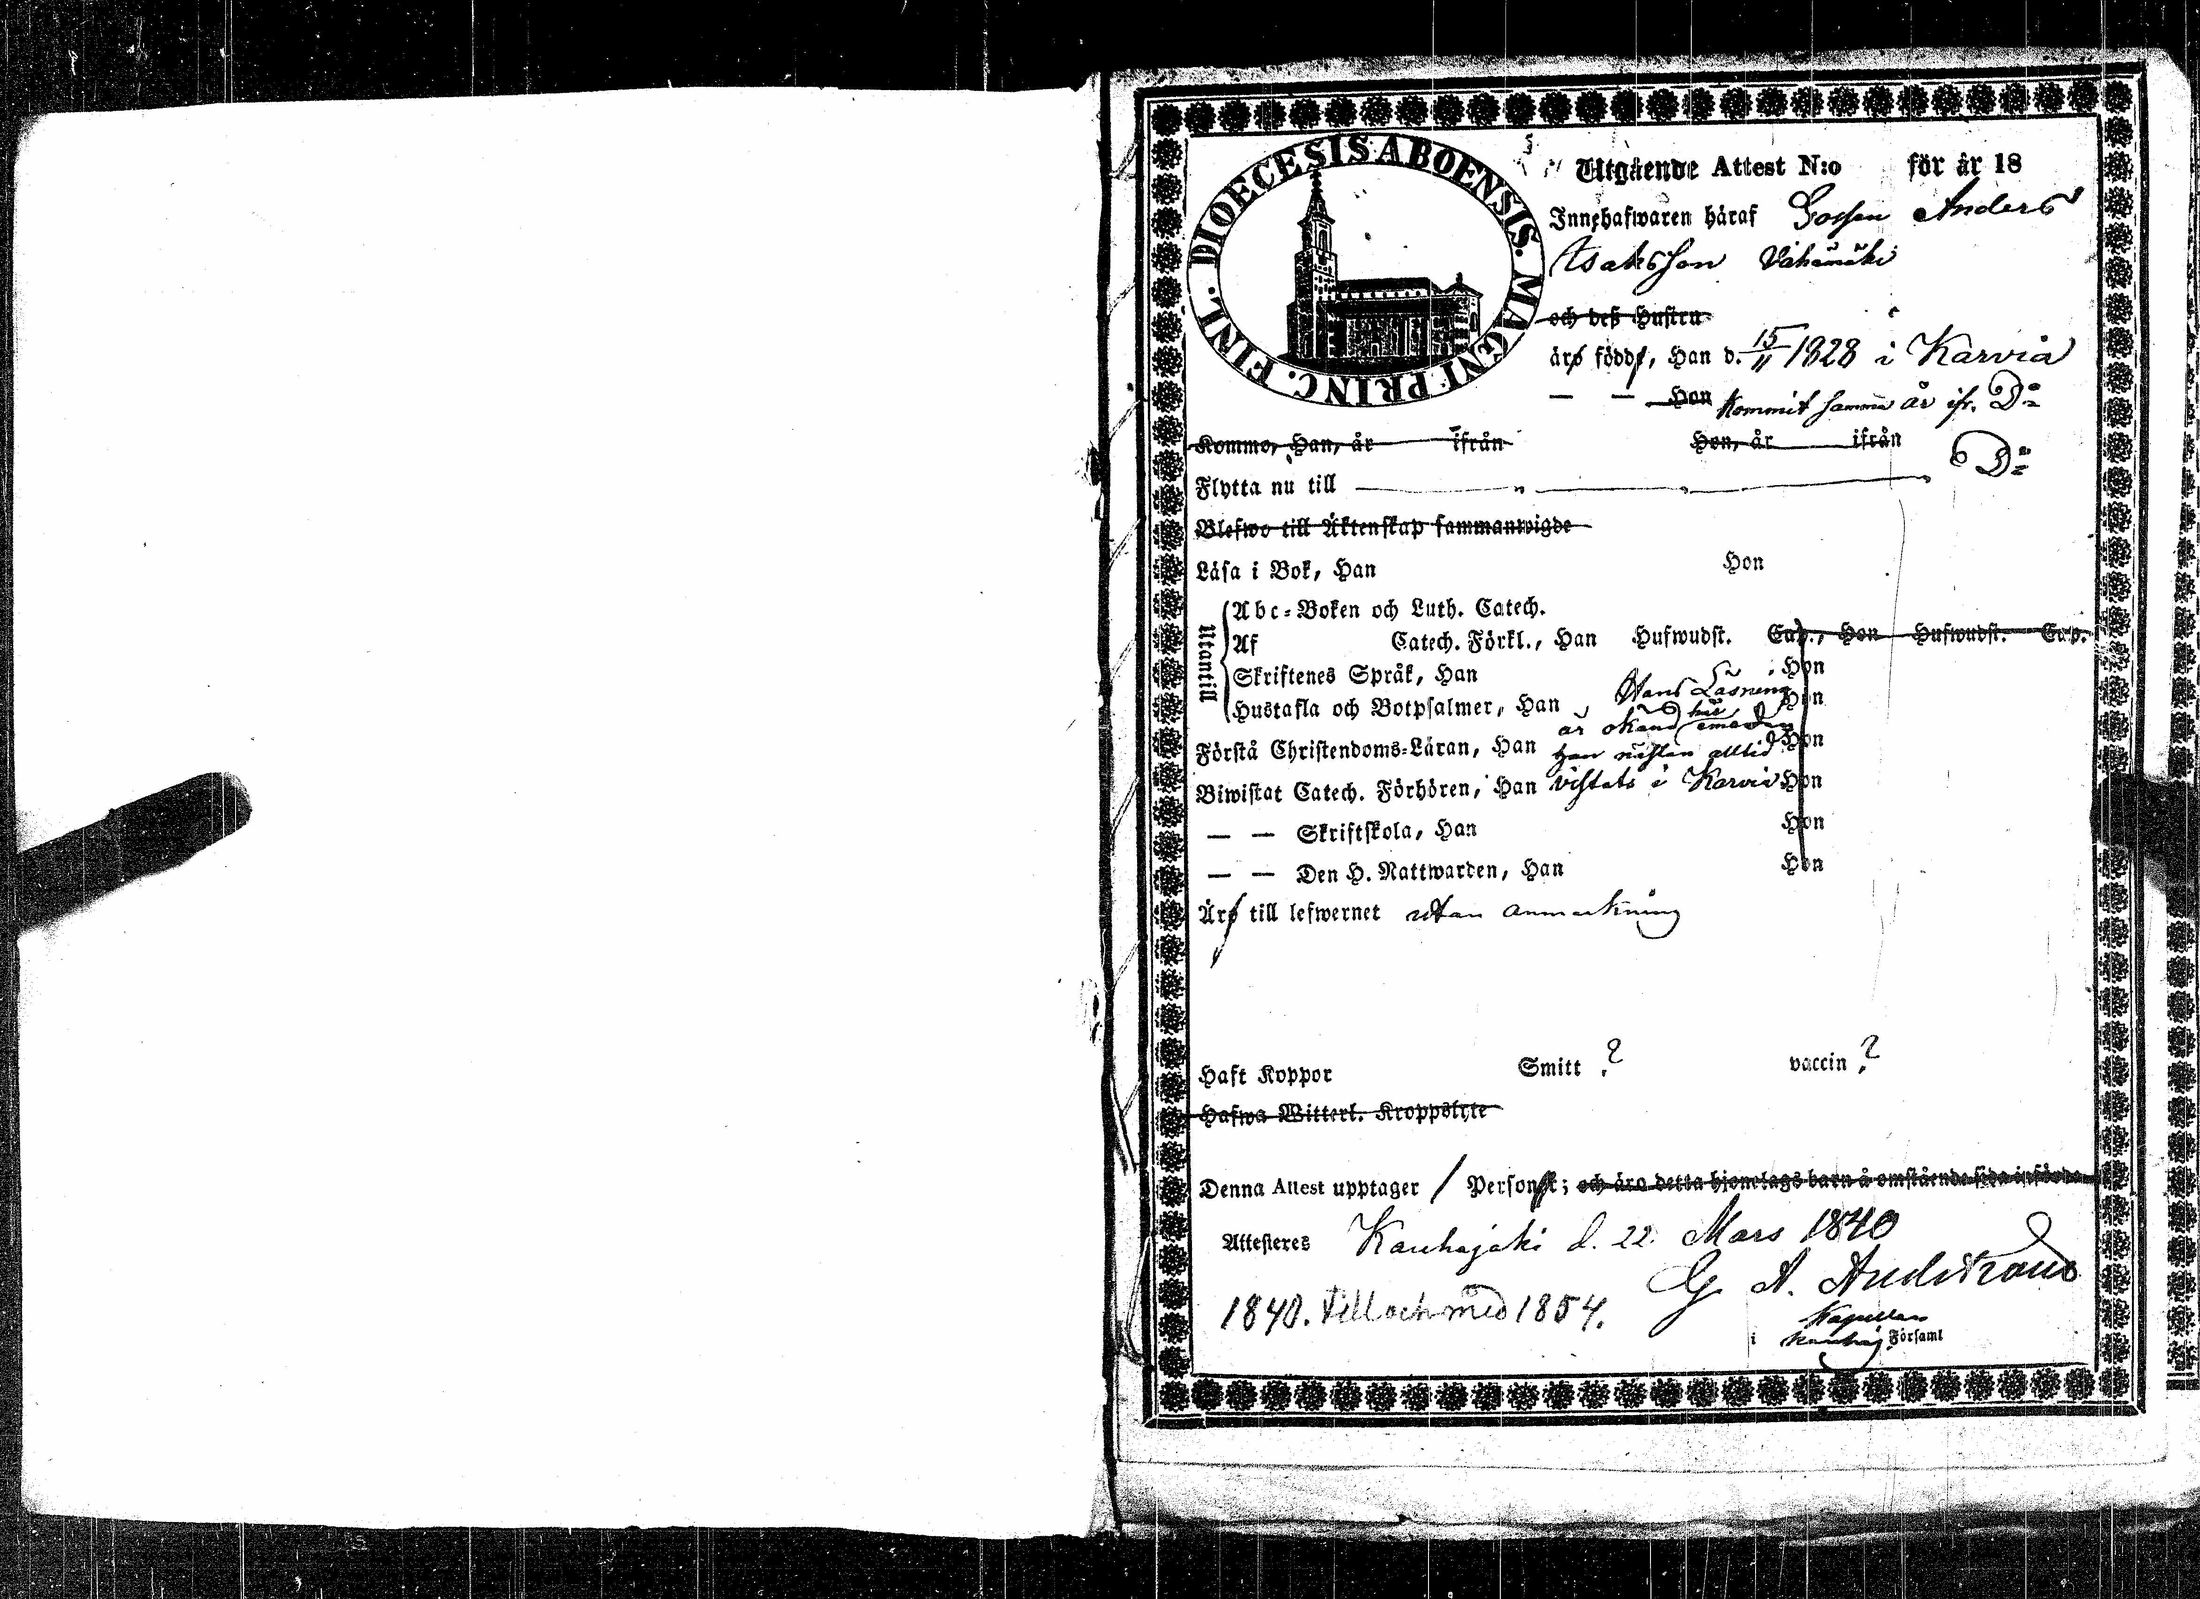 DIOECESIS ABOENSIS. MAGNI PRINC. FINL.
Utgående Attest N:o för år 18
Innehafwaren häraf Gossen Anders
Isaksson Vähämäki
och deß Hustru
äro födde, Han d. 15/11 1828 i Karvia
— — Hon Kommit samma år ifr. D:o
Kommo, Han, år ifrån Hon, år ifrån
Flytta nu till D:o
Blefwo till Äktenskap sammanwigde
Läsa i Bok, Han Hon
Utantill
Abc-Boken och Luth. Catech.
Af Catech. Förkl., Han Hufwudst. Cap., Hon Hufwudst. Cap.
Skriftenes Språk, Han Hon
Hustafla och Botpsalmer, Han Hans Läsning Hon
är okänd här emedan
Förstå Christendoms-Läran, Han han nästan alltid Hon
Biwistat Catech. Förhören, Han vistats i Karvia Hon
— — Skriftskola, Han Hon
— — Den H. Nattwarden, Han Hon
Äro till lefwernet utan anmärkning
Haft Koppor Smitt ? vaccin ?
Hafwa Witterl. Kroppslyte
Denna Attest upptager 1 Person; och äro detta hjonelags barn å omstående sida införda
Attesteres Kauhajoki d. 22 Mars 1840
G. A.
1840. till och med 1854.
Kapellan
i Kauhaj. Församl